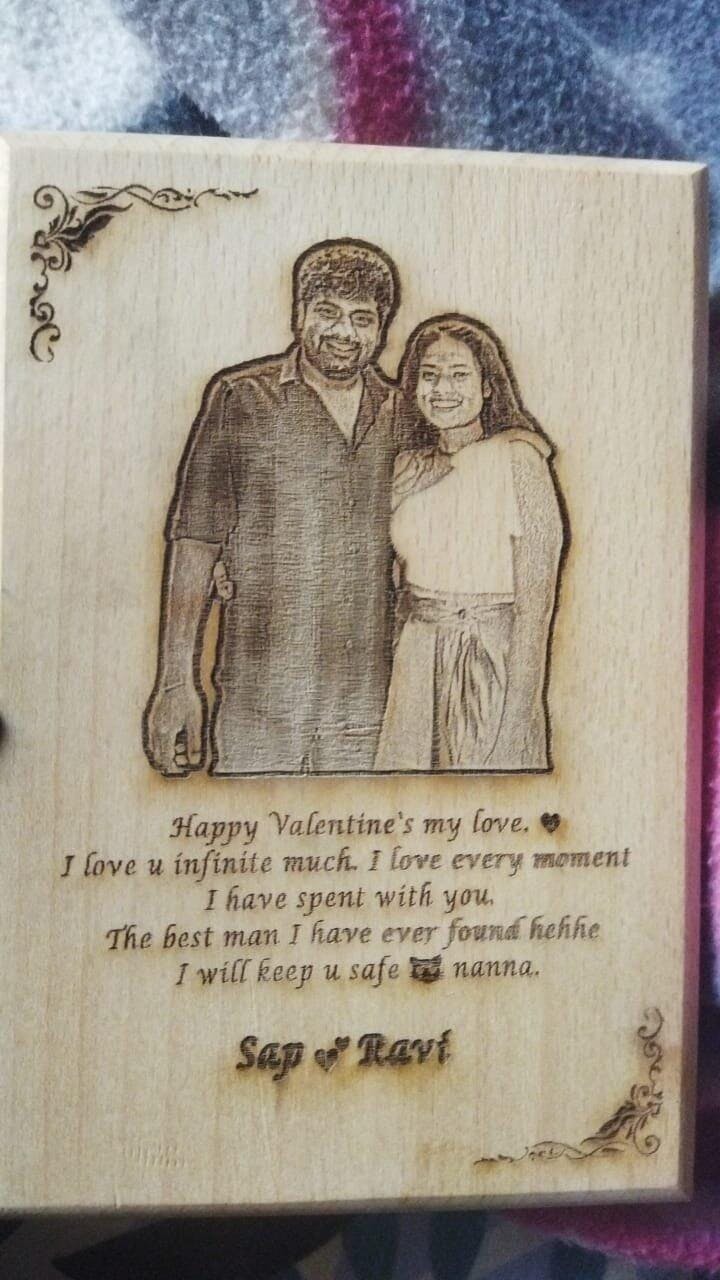 Happy Valentine's my love. ♥
I love u infinite much. I love every moment
I have spent with you.
The best man I have ever found hehhe
I will keep u safe 🐯 nanna.
Sap 💕 Ravi